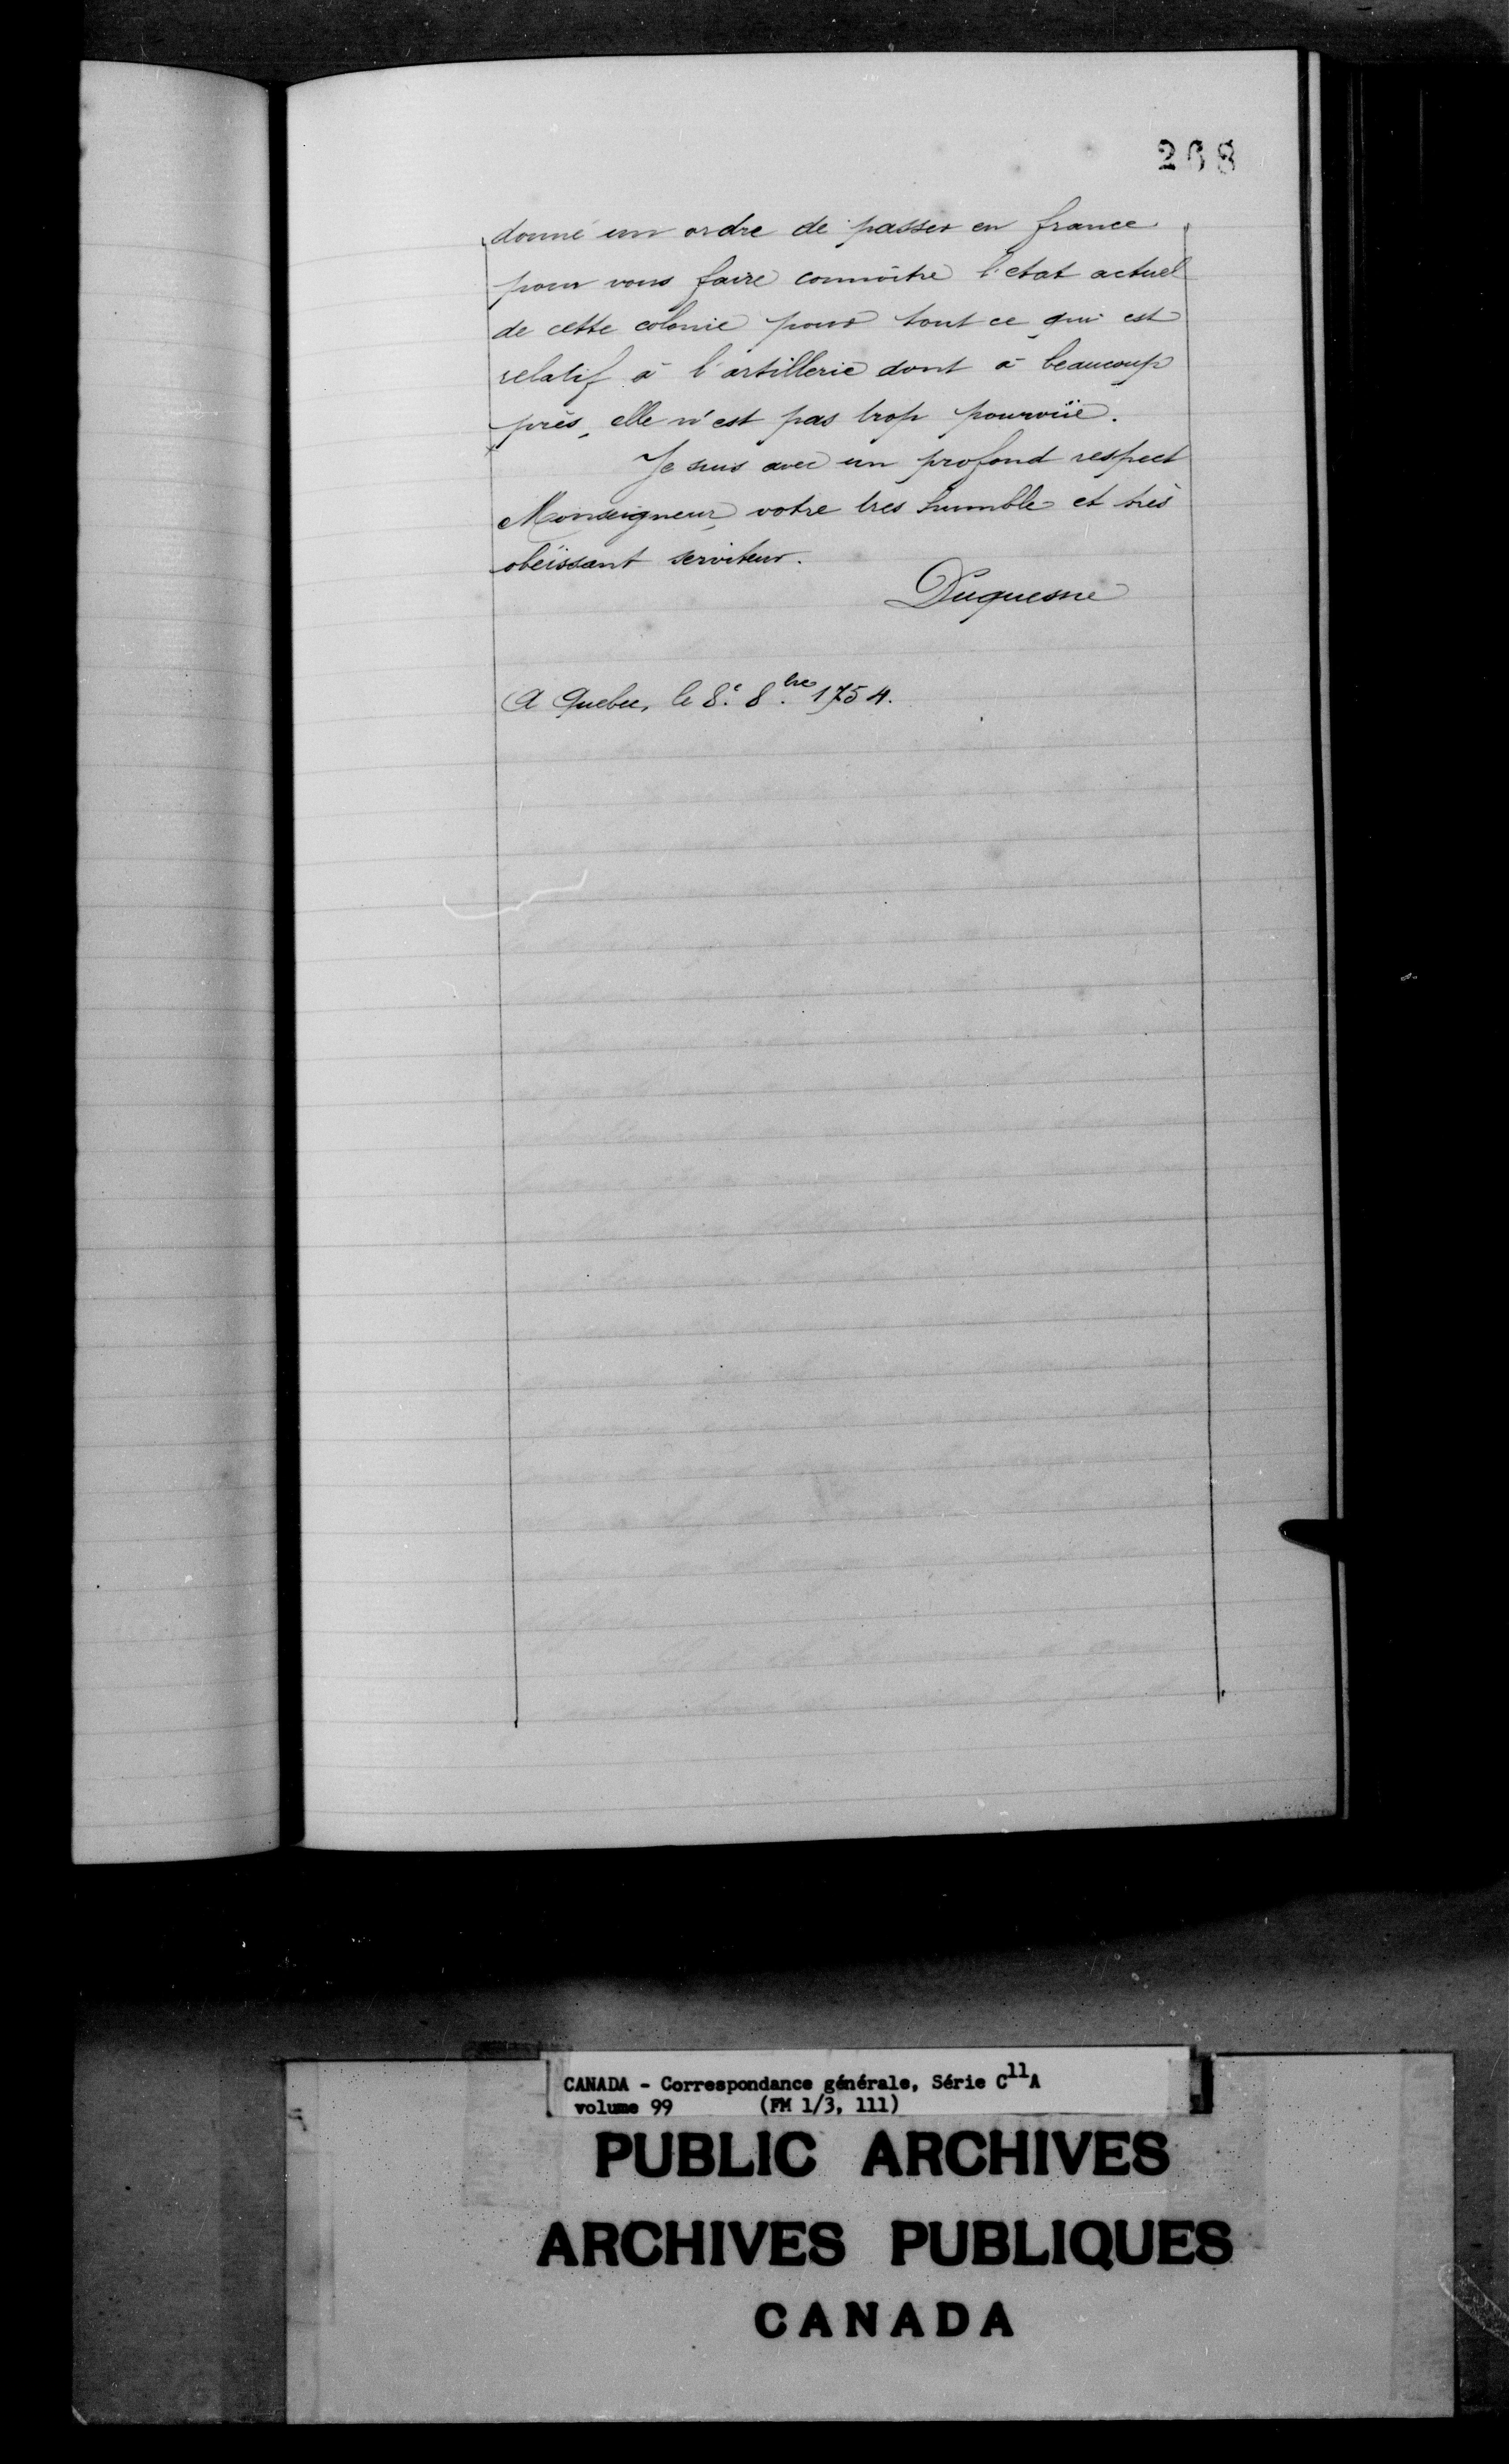 268
donné un ordre de passer en france
pour vous faire connoître l'etat actuel
de cette colonie pour tout ce qui est
relatif à l'artillerie dont à beaucoup
près, elle n'est pas trop pourvüe.
Je suis avec un profond respect
Monseigneur, votre tres humble et très
obeïssant serviteur.
Duquesne
A Quebec, le 8e. 8.bre 1754.
CANADA - Correspondance générale, Série C11A
volume 99 (FM 1/3, 111)
PUBLIC ARCHIVES
ARCHIVES PUBLIQUES
CANADA